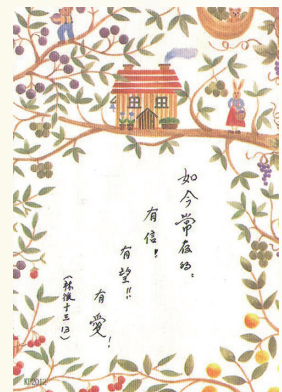 如今常存的。
有信!
有望!!
有愛!
(林後十三13)